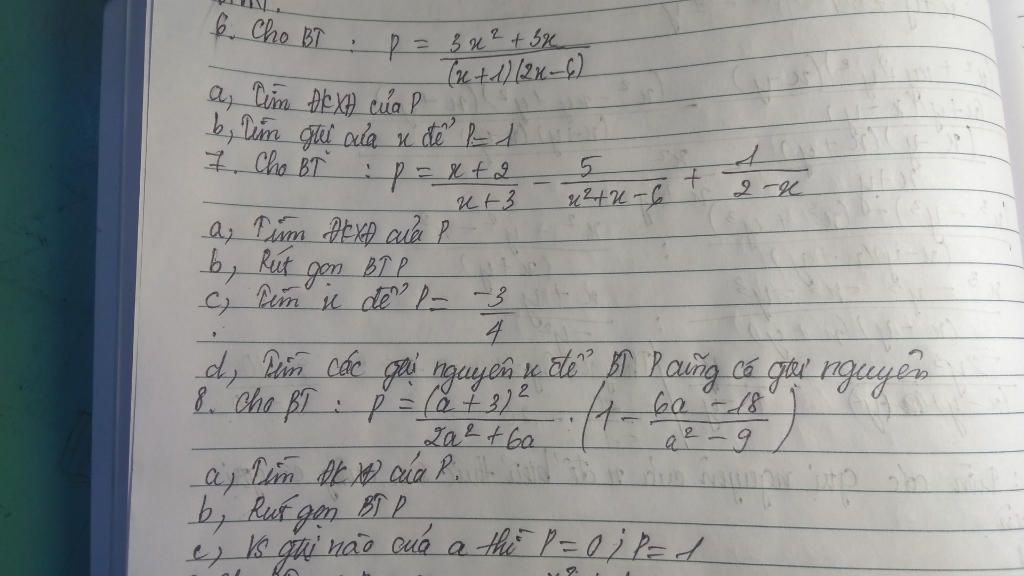 6. Cho BT : P = (3x² + 3x)/((x+1)(2x-6))
a, Tìm ĐKXĐ của P
b, Tìm gtri của x để P = 1
7. Cho BT : P = (x+2)/(x+3) - 5/(x²+x-6) + 1/(2-x)
a, Tìm ĐKXĐ của P
b, Rút gọn BT P
c, Tìm x để P = -3/4
d, Tìm các gtri nguyên x để BT P cũng có gtri nguyên
8. Cho BT : P = (a+3)²/(2a²+6a) . (1 - (6a-18)/(a²-9))
a, Tìm ĐKXĐ của P.
b, Rút gọn BT P
c, Vs gtri nào của a thì P = 0 ; P = 1